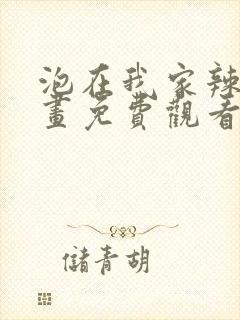 泡在我家辣
畫免費觀看
儲青胡